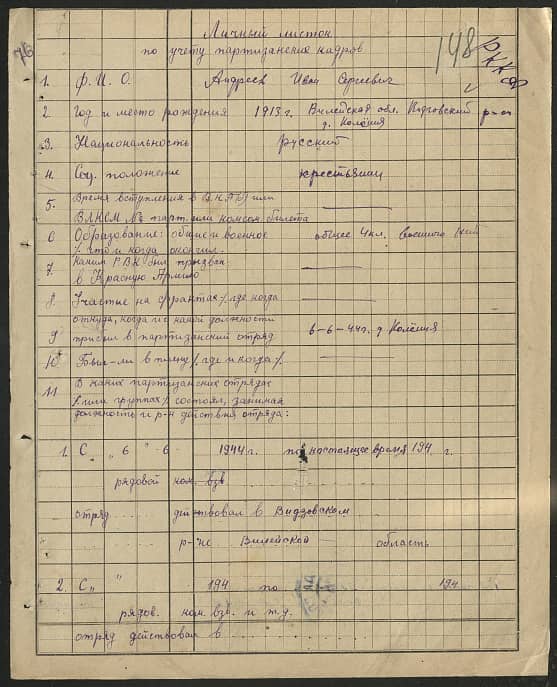 Личный листок
по учету партизанских кадров
76
148
РККА
1. Ф. И. О. Андреев Иван Сергеевич
2 Год и место рождения 1913 г. Вилейская обл. р-он
д. Колёция
3. Национальность русский
4. Соц. положение крестьянин
5. Время вступления в В.К.П(б) или
ВЛКСМ № парт. или комсом. билета
6 Образование: общее и военное общее 4 кл. военного
/. что и когда окончил.
7. Каким Р В К был призван
в Красную Армию
8. Участие на фронтах /. где когда
откуда, когда и с какой должности
9 прибыл в партизанский отряд 6-6-44 г. д Колёция
10 Был-ли в плену /. где и когда /.
11 В каких партизанских отрядах
/. или группах /. состоял, занимая
должность и р-н действия отряда:
1. С „ 6 " 6 1944 г. по настоящее время 194 г.
рядовой ком. взв.
отряд действовал в Видзовском
р-не Вилейской область
2. С „ " 194 по 194
рядов. ком. взв. и т.д.
отряд действовал в